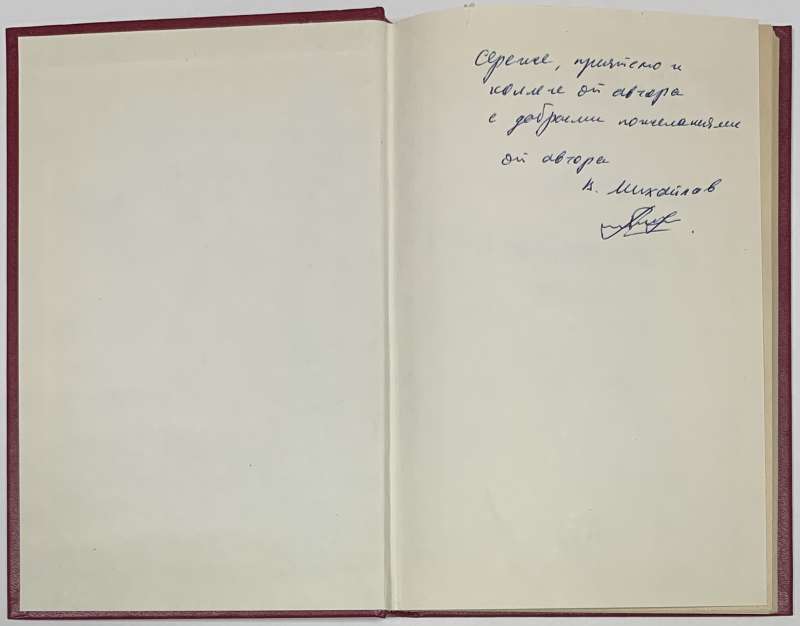 Сереже, приятелю и
коллеге от автора
с добрыми пожеланиями
от автора
В. Михайлов